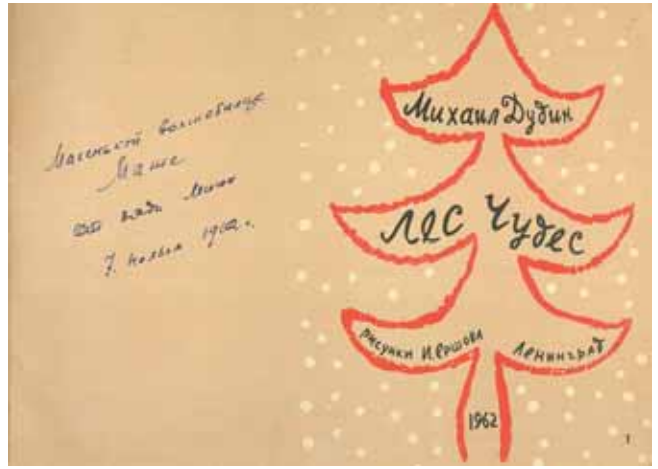 Маленькой волшебнице
Маше
от дяди Миши
7. 1962 г.
Михаил Дудин
Лес Чудес
рисунки И. Ершова
Ленинград
1962
1